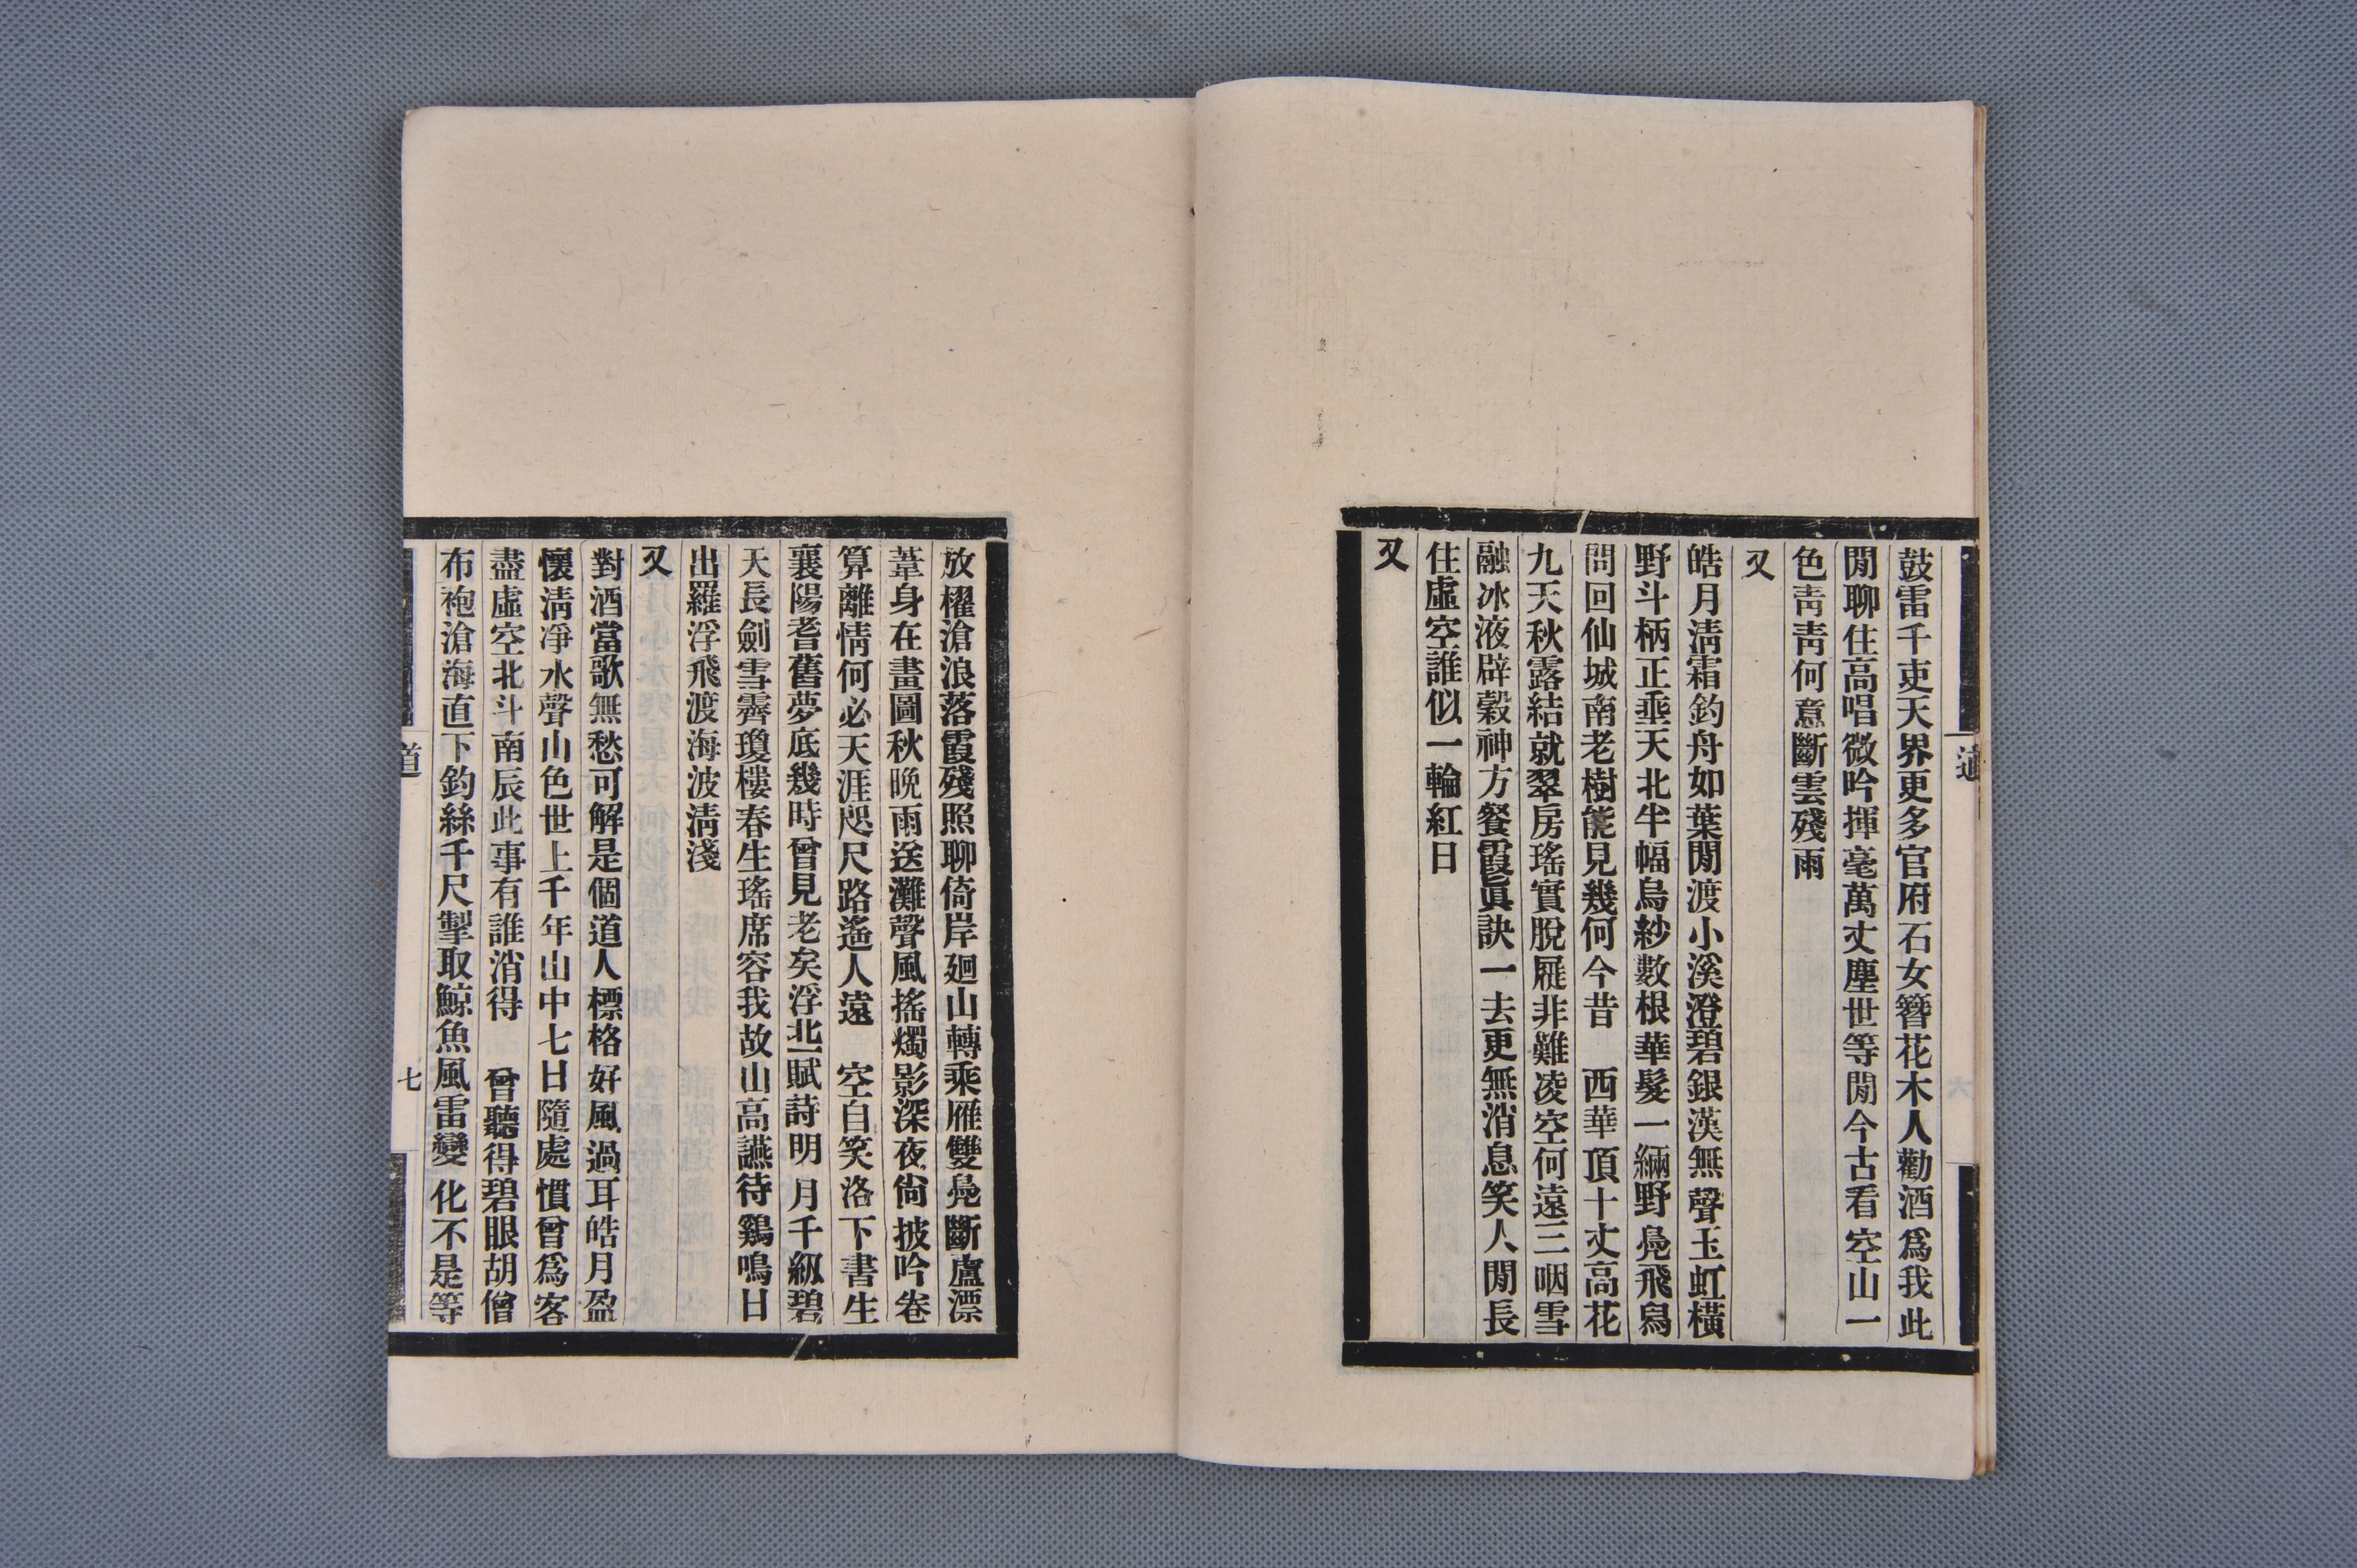 鼓雷千吏天界更多官府石女簪花木人勸酒爲我此
閒聊住高唱微吟揮毫萬丈塵世等閒今古看空山一
色靑靑何意斷雲殘雨
又
皓月淸霜釣舟如葉閒渡小溪澄碧銀漢無聲玉虹橫
野斗柄正垂天北半幅烏紗數根華髮一緉野鳧飛舄
問回仙城南老樹能見幾何今昔　西華頂十丈高花
九天秋露結就翠房瑤實脫屣非難凌空何遠三咽雪
融冰液辟穀神方餐霞眞訣一去更無消息笑人閒長
住虛空誰似一輪紅日
又
道
放櫂滄浪落霞殘照聊倚岸迴山轉乘雁雙鳧斷蘆漂
葦身在畫圖秋晚雨送灘聲風搖燭影深夜尙披吟卷
算離情何必天涯咫尺路遙人遠　空自笑洛下書生
襄陽耆舊夢底幾時曾見老矣浮北賦詩明月千紉碧
天長劍雪霽瓊樓春生瑤席容我故山高讌待鷄鳴日
出羅浮飛渡海波淸淺
又
對酒當歌無愁可解是個道人標格好風過耳皓月盈
懷淸淨水聲山色世上千年山中七日隨處慣曾爲客
盡虛空北斗南辰此事有誰消得　曾聽得碧眼胡僧
布袍滄海直下釣絲千尺掣取鯨魚風雷變化不是等
道
七